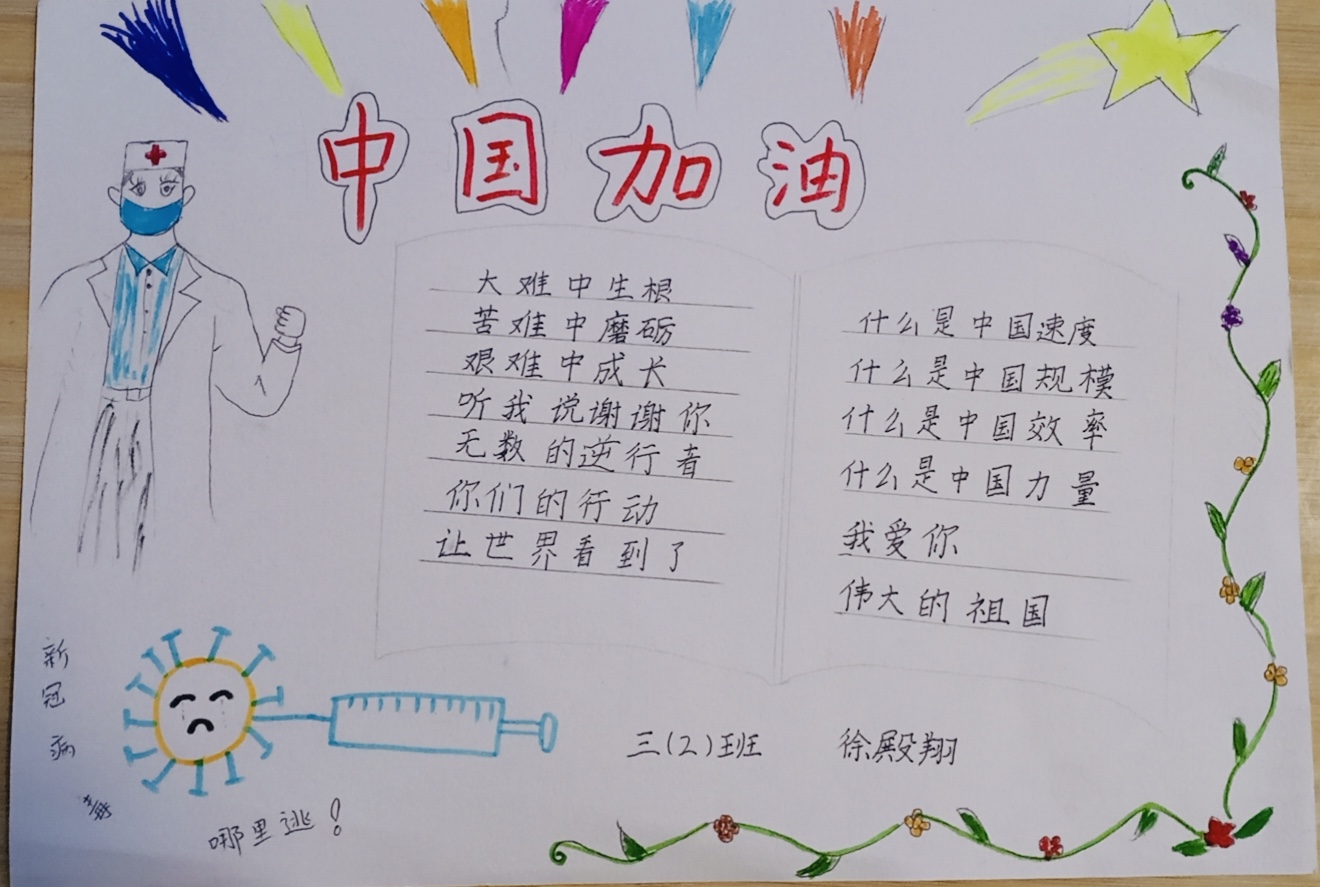 中国加油
大难中生根
苦难中磨砺
艰难中成长
听我说谢谢你
无数的逆行者
你们的行动
让世界看到了
什么是中国速度
什么是中国规模
什么是中国效率
什么是中国力量
我爱你
伟大的祖国
新冠病毒
哪里逃！
三（2）班 徐殿翔